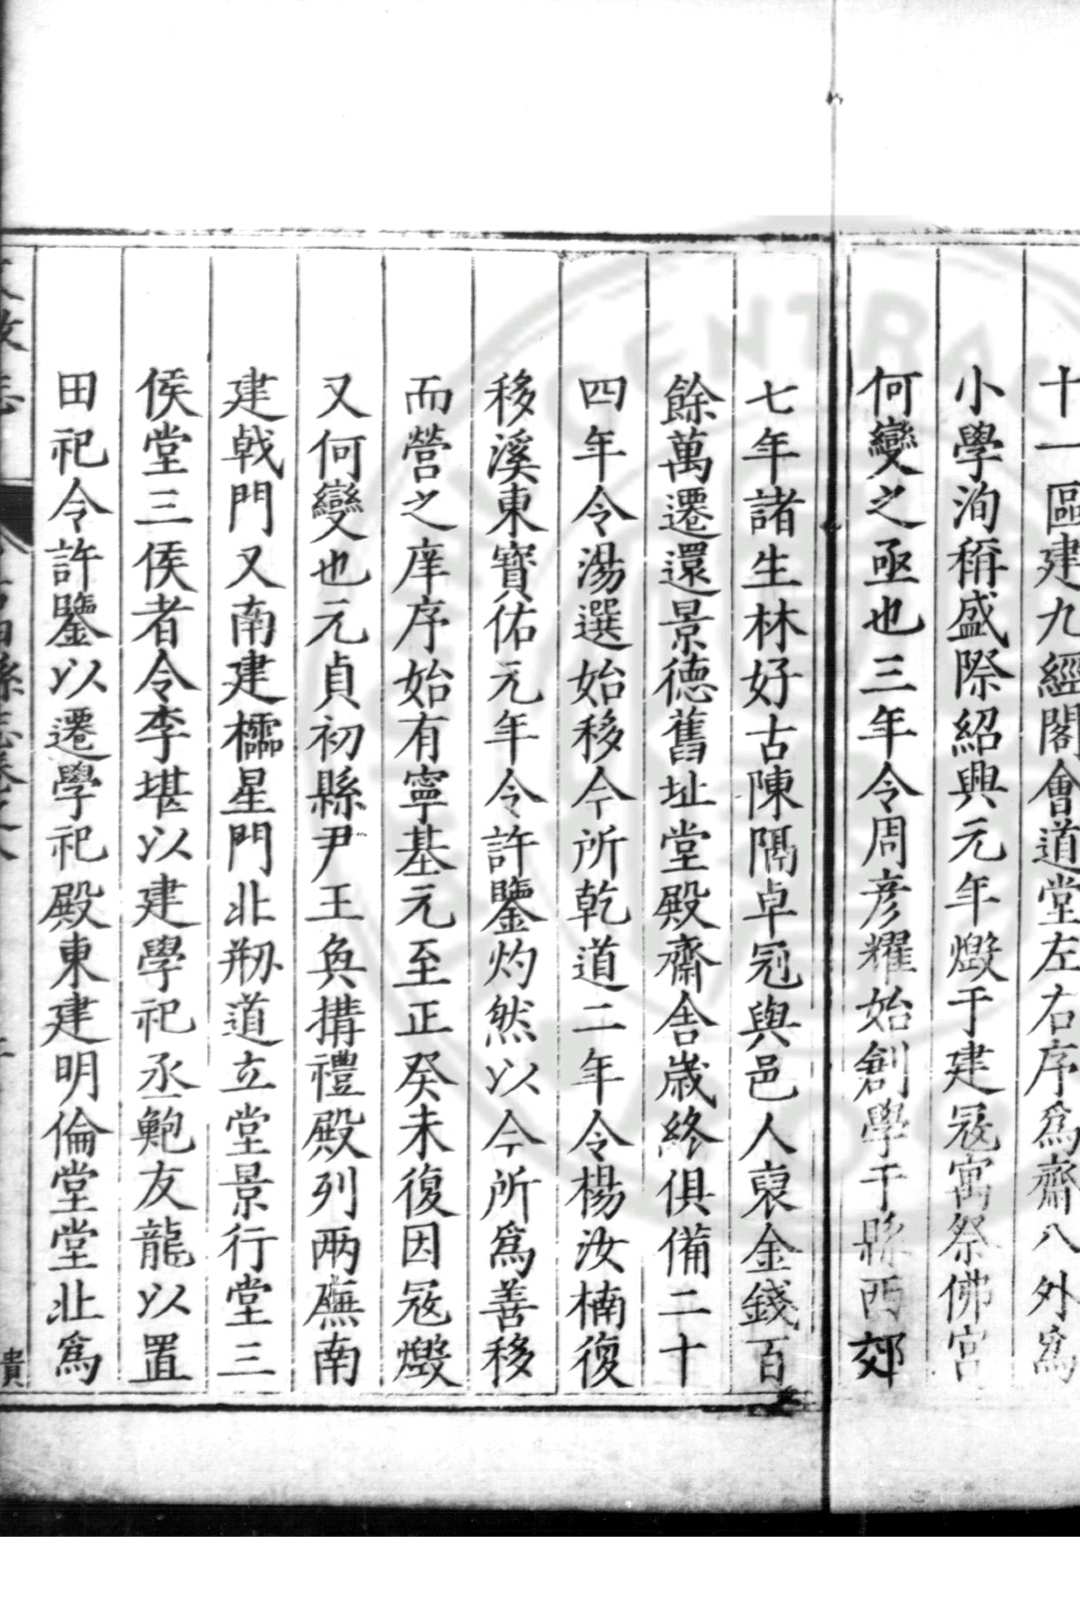 十一區建九經閣會道堂左右序爲齋八外爲
小學洵稱盛際紹興元年燬于建冦寓祭佛宫
何變之亟也三年令周彦耀始創學于縣西郊
七年諸生林好古陳隔卓冠與邑人裒金錢百
餘萬遷還景德舊址堂殿齋舎歲終俱備二十
四年令湯選始移今所乾道二年令楊汝楠復
移溪東寳佑元年令許鑒灼然以今所爲善移
而營之庠序始有寧基元至正癸未復因冦燬
又何變也元貞初縣尹王奐搆禮殿列两廡南
建戟門又南建欞星門北剏道立堂景行堂三
侯堂三侯者令李堪以建學祀丞鮑友龍以置
田祀令許鑒以遷學祀殿東建明倫堂堂北爲